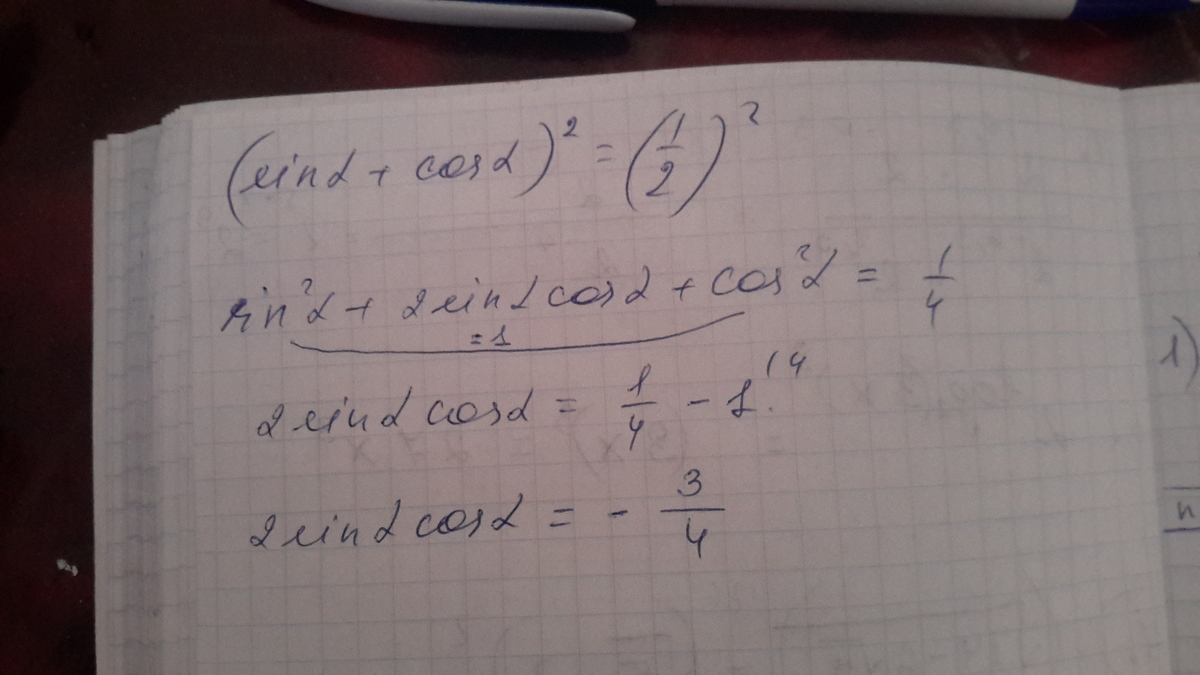 (sinα + cosα)² = (1/2)²
sin²α + 2sinα cosα + cos²α = 1/4
= 1
2sinα cosα = 1/4 - 1 (4
2sinα cosα = - 3/4
1)
n